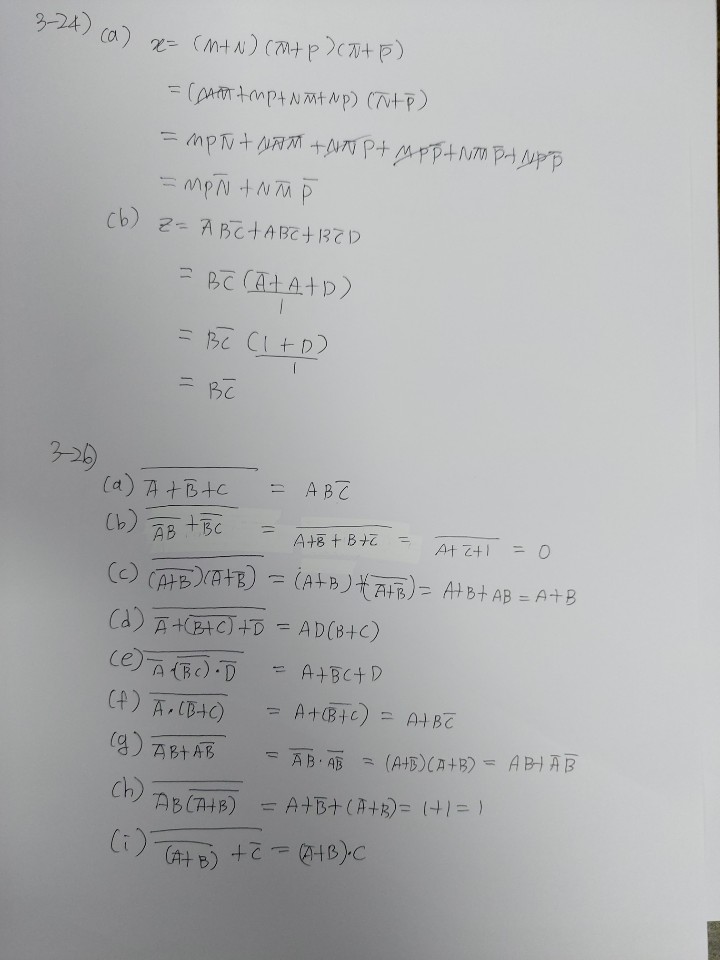 3-24) (a) x = (M+N)(M̅+P)(N̅+P̅)
= (MM̅+MP+NM̅+NP)(N̅+P̅)
= MPN̅ + NN̅M̅ + NN̅P + MPP̅ + NM̅P̅ + NPP̅
= MPN̅ + NM̅P̅
(b) z = A̅BC̅ + ABC̅ + BC̅D
= BC̅ (A̅+A+D)
1
= BC̅ (1+D)
1
= BC̅
3-26)
(a) \overline{A̅+B̅+C} = ABC̅
(b) \overline{\overline{A̅B}+\overline{B̅C}} = \overline{A+B̅+B+C̅} = \overline{A+C̅+1} = 0
(c) \overline{(\overline{A+B})(A̅+B̅)} = (A+B)+(\overline{A̅+B̅}) = A+B+AB = A+B
(d) \overline{A̅+(\overline{B+C})+D̅} = AD(B+C)
(e) \overline{A̅·(\overline{B̅C})·D̅} = A+B̅C+D
(f) \overline{A̅·(B̅+C)} = A+(\overline{B̅+C}) = A+BC̅
(g) \overline{A̅B+AB̅} = \overline{A̅B}·\overline{AB̅} = (A+B̅)(A̅+B) = AB+A̅B̅
(h) \overline{A̅B(\overline{A̅+B})} = A+B̅+(A̅+B) = 1+1 = 1
(i) \overline{(\overline{A̅+B})+C̅} = (A̅+B)·C